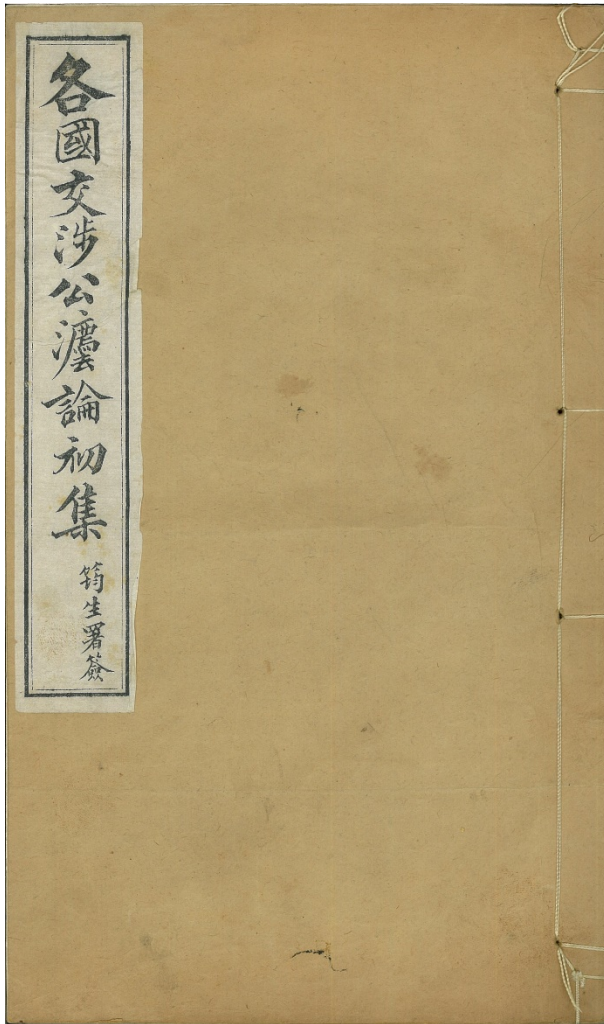 各國交涉公灋論初集
筠生署簽